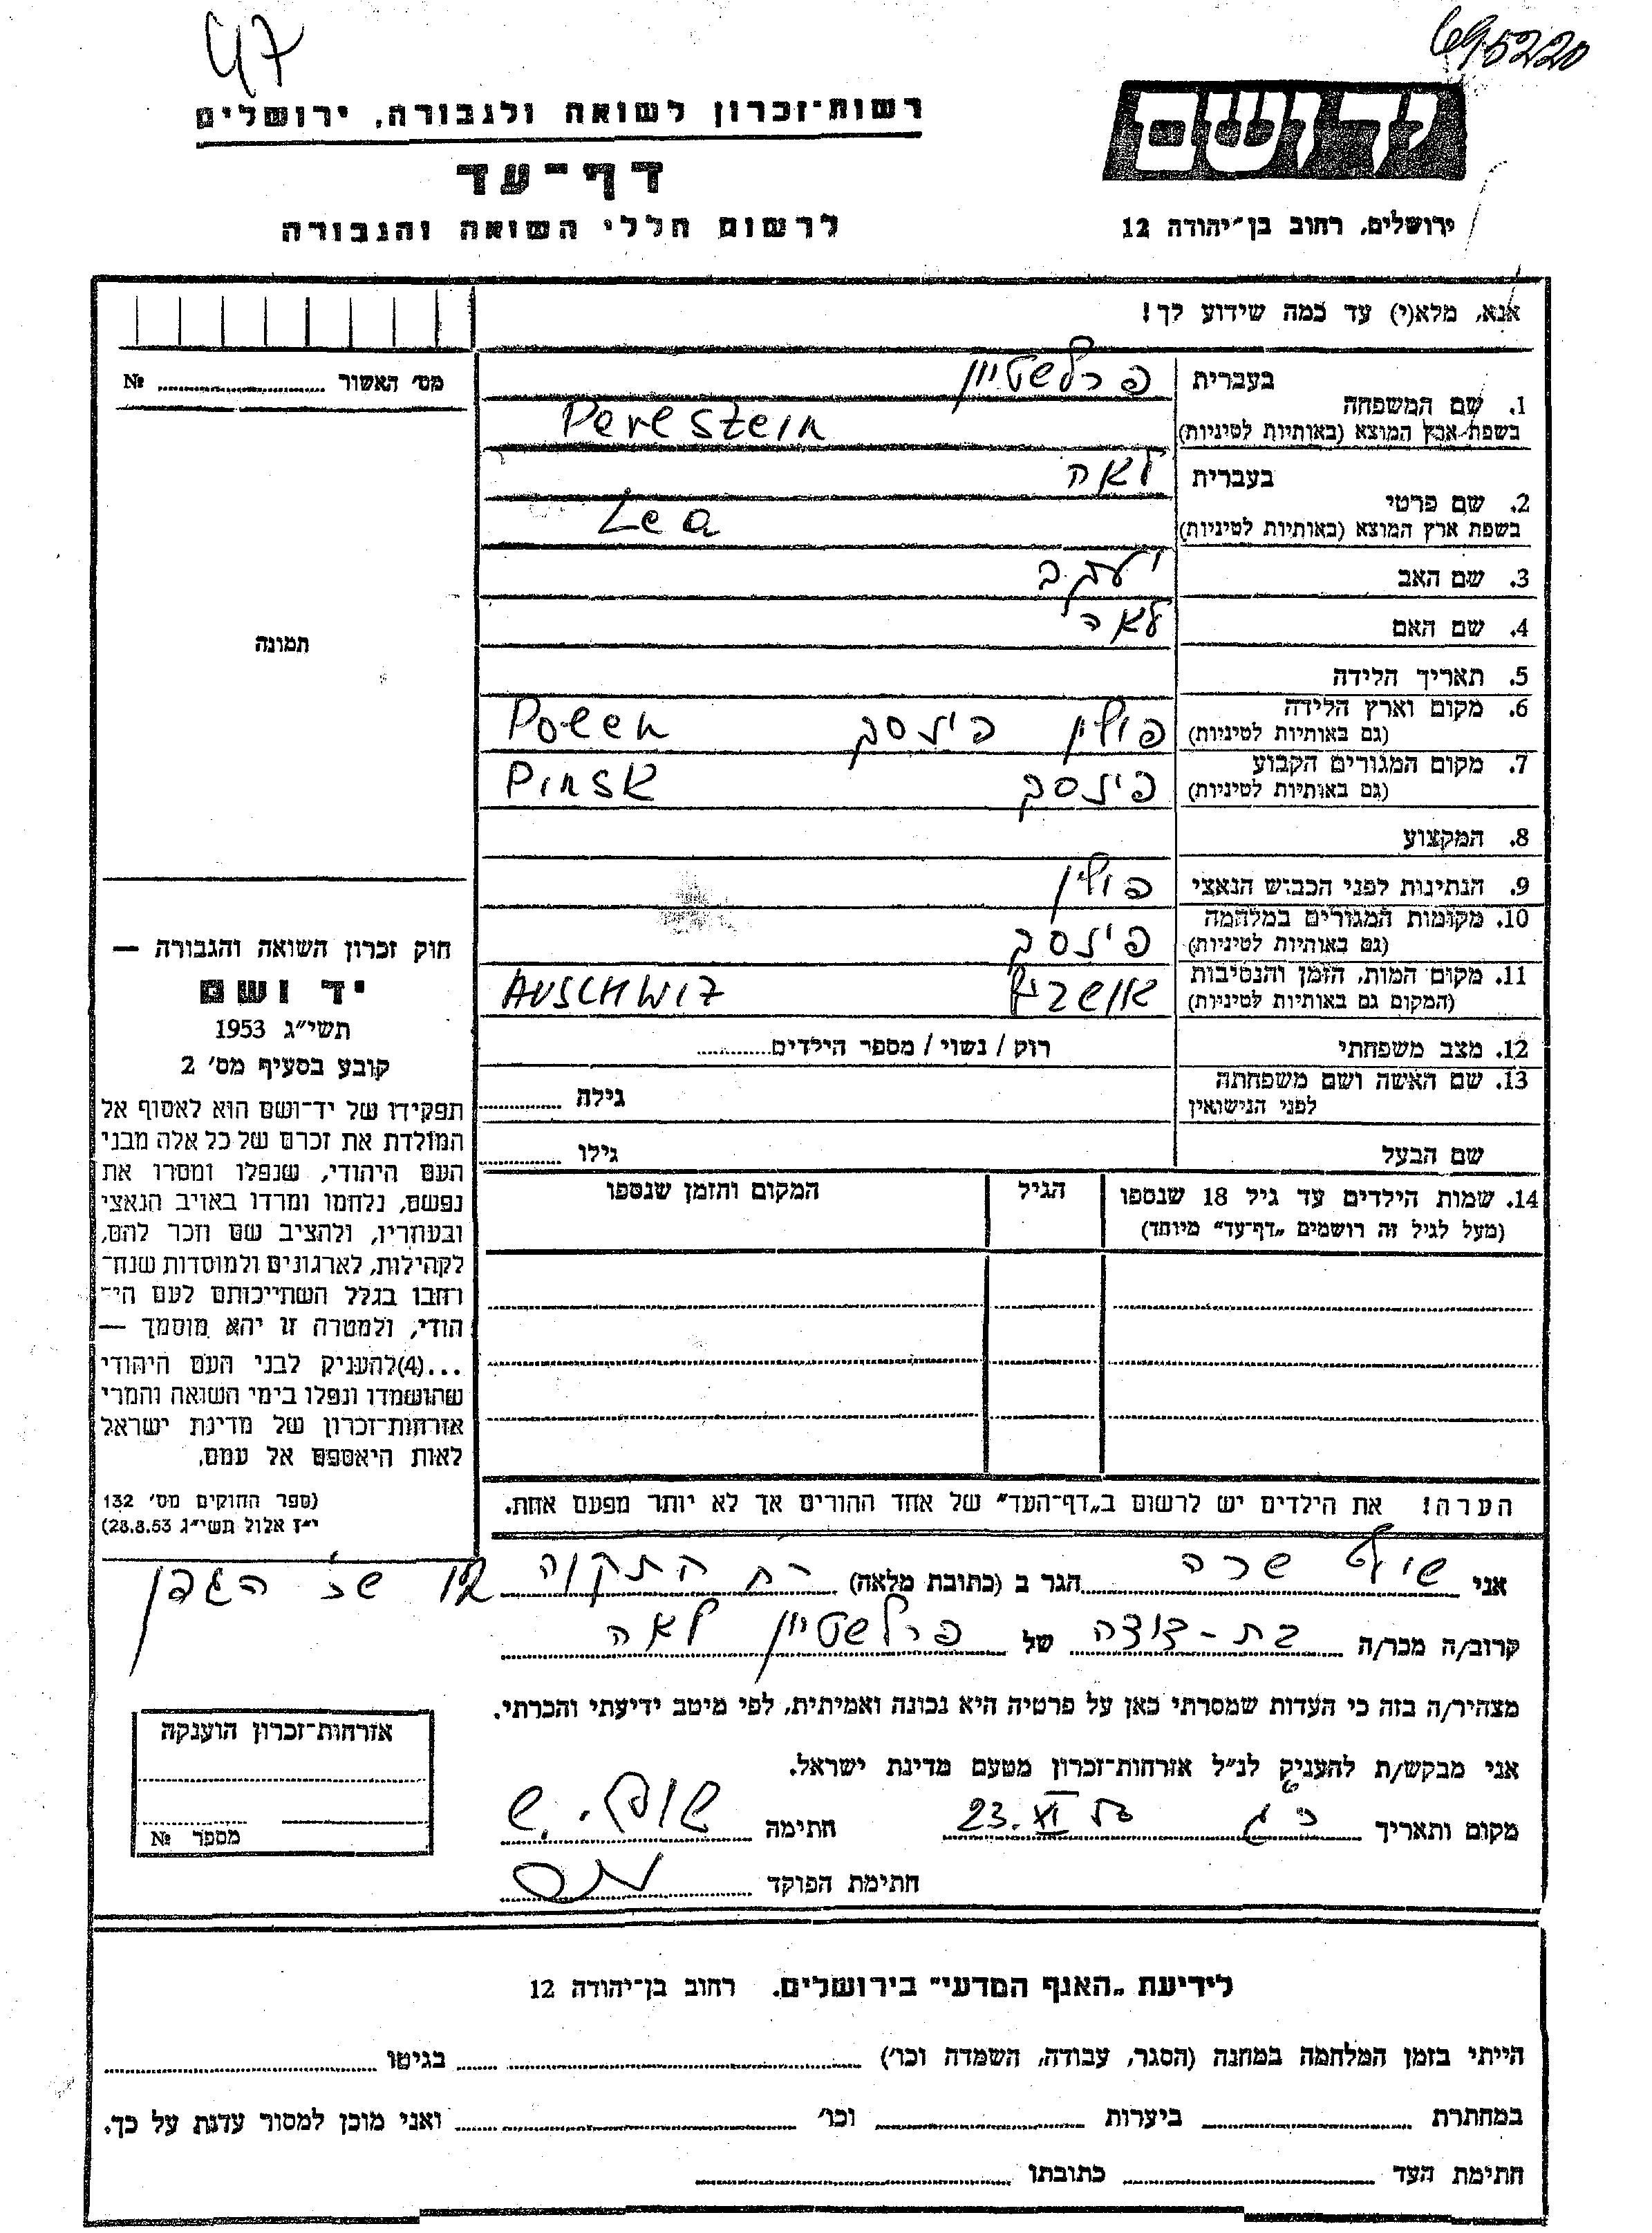 47
695220
רשות־זכרון לשואה ולגבורה, ירושלים
ידושם
דף־עד
לרשום חללי השואה והגבורה
ירושלים, רחוב בן־יהודה 12
אנא, מלא(י) עד כמה שידוע לך!
מס׳ האשור № 
1. שם המשפחה
בעברית פרלשטיין
בשפת־ארץ המוצא (באותיות לטיניות) Perlstein
2. שם פרטי
בעברית לאה
בשפת ארץ המוצא (באותיות לטיניות) Lea
3. שם האב יעקב
4. שם האם לאה
תמונה
5. תאריך הלידה
6. מקום וארץ הלידה
(גם באותיות לטיניות) פולין פינסק Polen
7. מקום המגורים הקבוע
(גם באותיות לטיניות) פינסק Pinsk
8. המקצוע
9. הנתינות לפני הכבוש הנאצי פולין
10. מקומות המגורים במלחמה
(גם באותיות לטיניות) פינסק
11. מקום המות, הזמן והנסיבות
(המקום גם באותיות לטיניות) אושביץ AUSCHWIZ
12. מצב משפחתי רוק / נשוי / מספר הילדים
13. שם האשה ושם משפחתה
לפני הנישואין גילה
שם הבעל גילו
14. שמות הילדים עד גיל 18 שנספו הגיל המקום והזמן שנספו
(מעל לגיל זה רושמים „דף־עד״ מיוחד)
הערה! את הילדים יש לרשום ב„דף־העד״ של אחד ההורים אך לא יותר מפעם אחת.
חוק זכרון השואה והגבורה —
יד ושם
תשי״ג 1953
קובע בסעיף מס׳ 2
תפקידו של יד־ושם הוא לאסוף אל
המולדת את זכרם של כל אלה מבני
העם היהודי, שנפלו ומסרו את
נפשם, נלחמו ומרדו באויב הנאצי
ובעוזריו, ולהציב שם וזכר להם,
לקהילות, לארגונים ולמוסדות שנח־
רחבו בגלל השתייכותם לעם הי־
הודי, ולמטרה זו יהא מוסמך —
...(4)להעניק לבני העם היהודי
שהושמדו ונפלו בימי השואה והמרי
אזרחות־זכרון של מדינת ישראל
לאות היאספם אל עמם.
(ספר החוקים מס׳ 132
י״ז אלול תשי״ג 28.8.53)
אני שרה הגר ב (כתובת מלאה) רח התקוה הגפן
קרוב/ה מכר/ה בת-דודה של פרלשטיין לאה
מצהיר/ה בזה כי העדות שמסרתי כאן על פרטיה היא נכונה ואמיתית, לפי מיטב ידיעתי והכרתי.
אני מבקש/ת להעניק לנ״ל אזרחות־זכרון מטעם מדינת ישראל.
מקום ותאריך 23.XI חתימה
חתימת הפוקד
אזרחות־זכרון הוענקה
מספר №
לידיעת „האגף המדעי״ בירושלים. רחוב בן־יהודה 12
הייתי בזמן המלחמה במחנה (הסגר, עבודה, השמדה וכו׳) בגיטו
במחתרת ביערות וכו׳ ואני מוכן למסור עדות על כך.
חתימת העד כתובתו